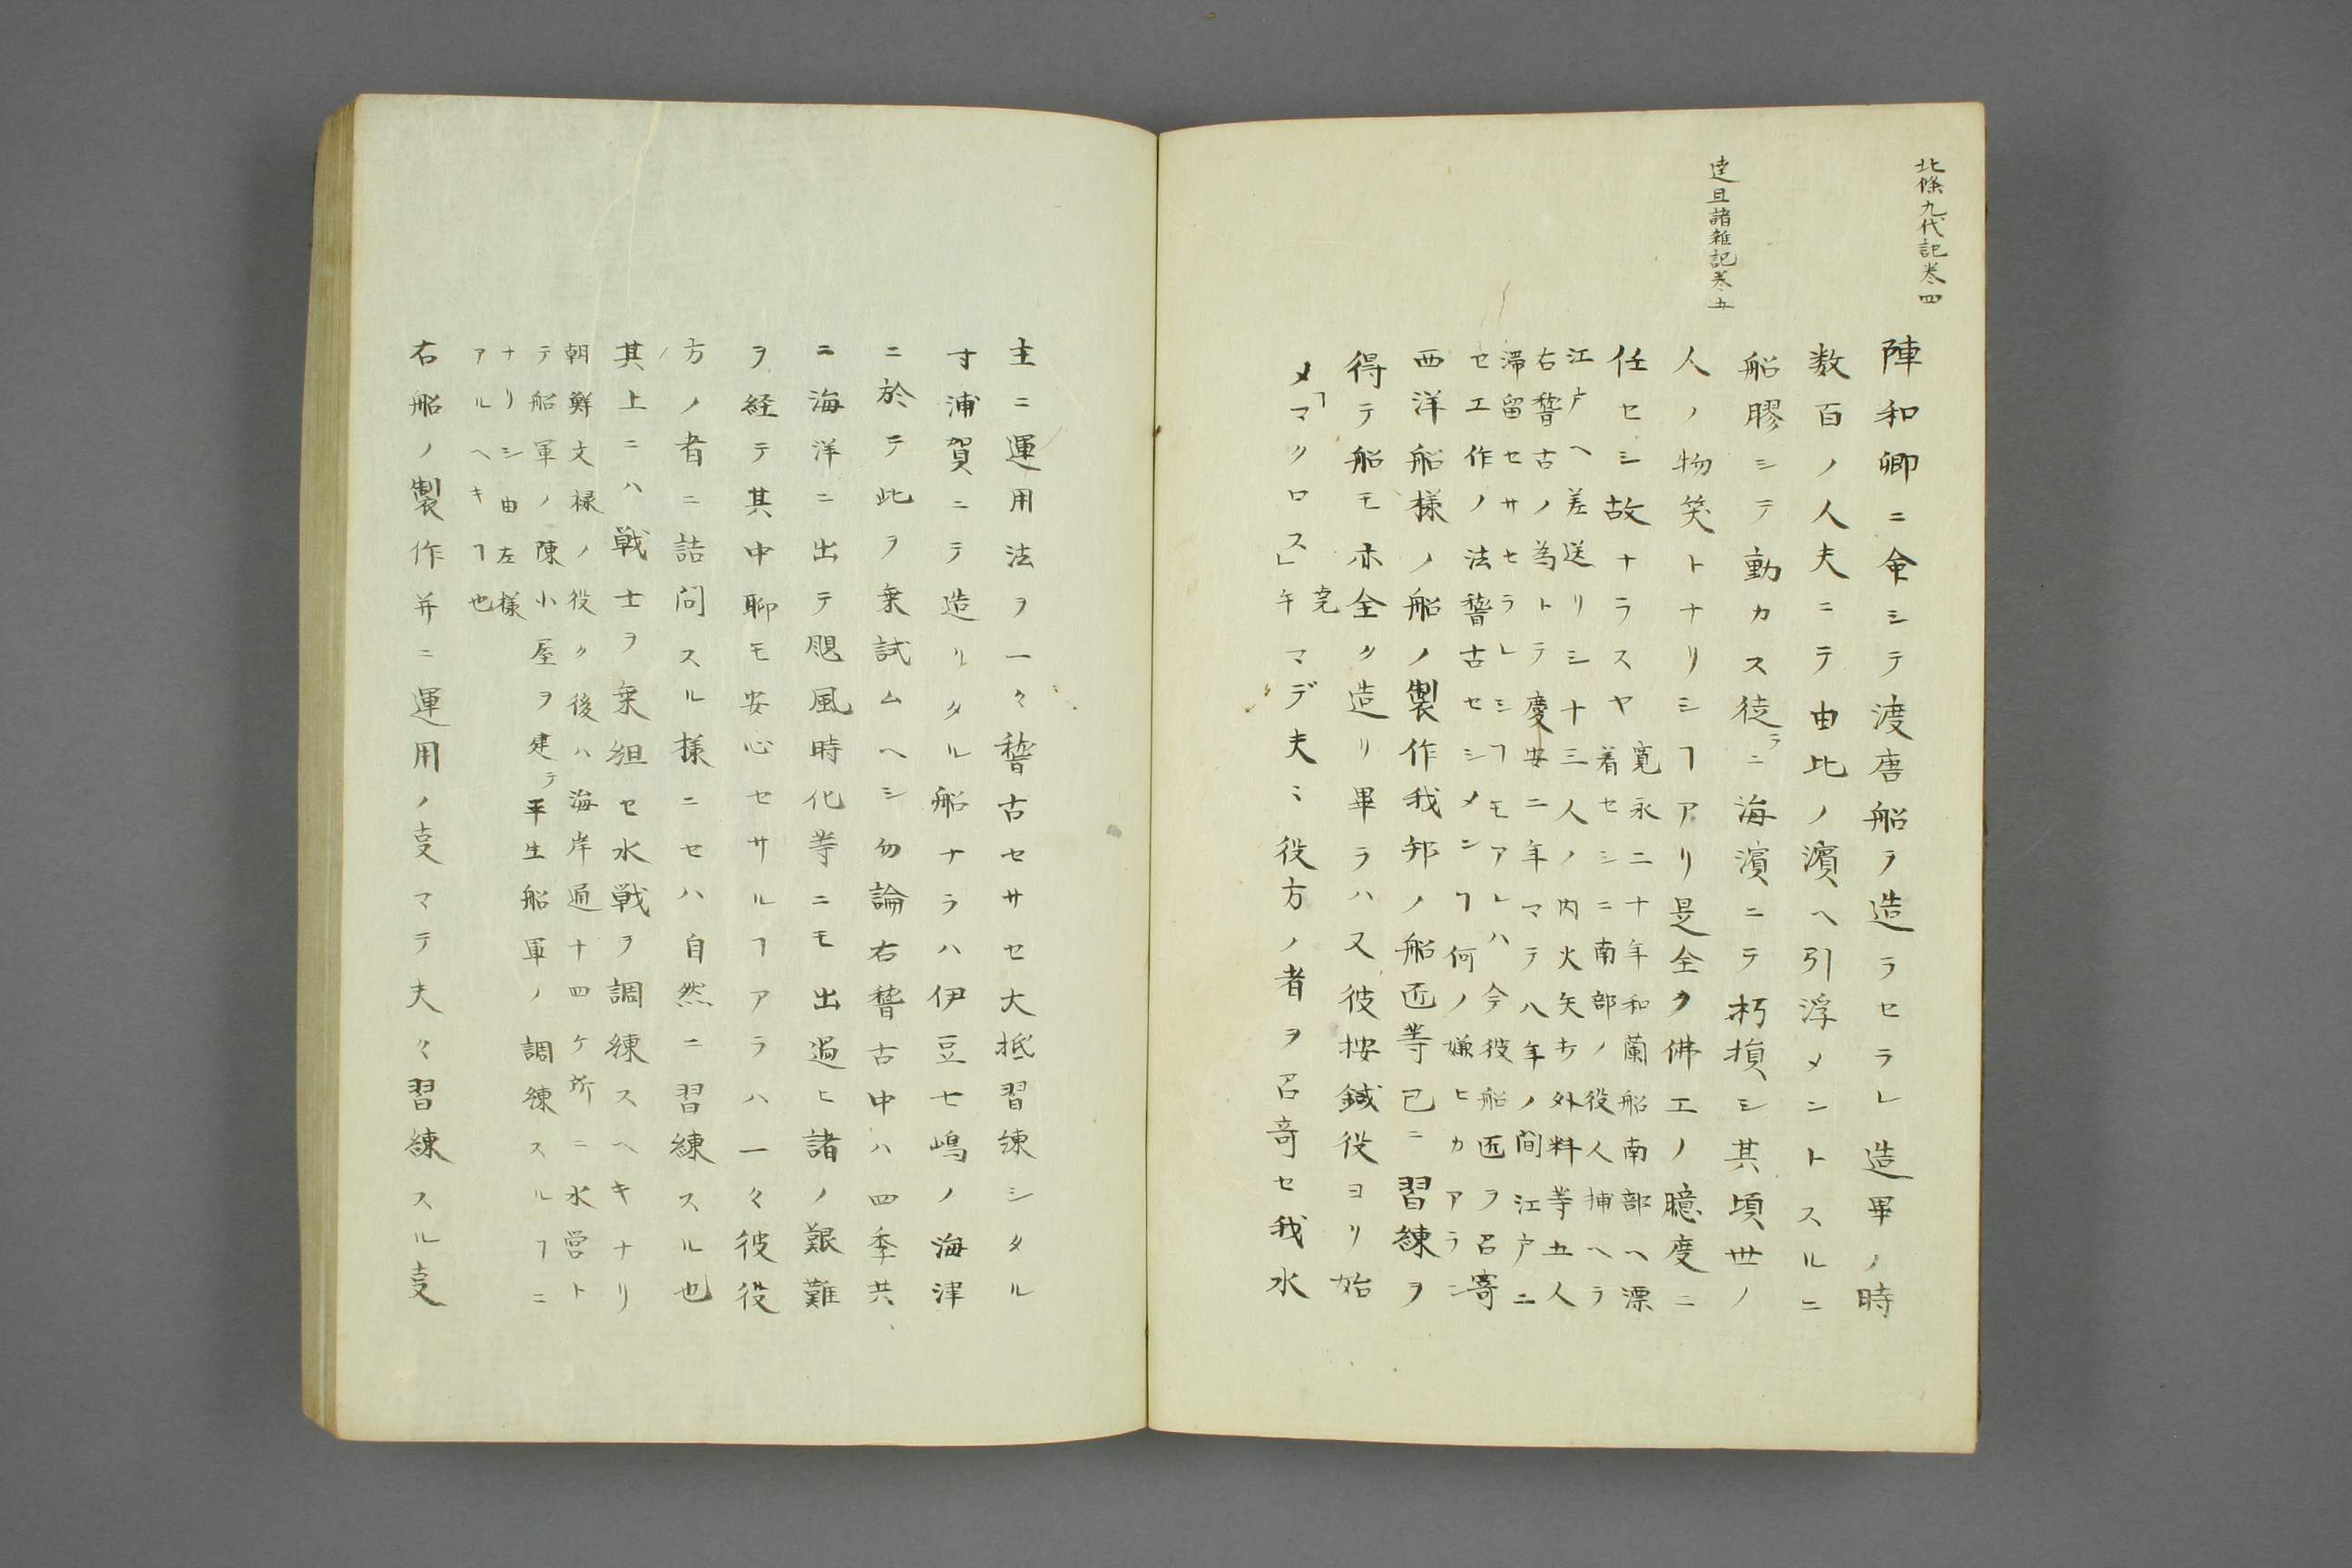 北條九代記巻四
陣和卿ニ命シテ渡唐船ヲ造ラセラレ造畢ノ時
数百ノ人夫ニテ由比ノ濱ヘ引浮メントスルニ
船膠シテ動カス徒ラニ海濱ニテ朽損シ其頃世ノ
達且諸雑記巻五
人ノ物笑トナリシヿアリ是全ク佛工ノ臆度ニ
任セシ故ナラスヤ
寛永二十年和蘭船南部ヘ漂
着セシニ南部ノ役人捕ヘラ
江戸ヘ差送リシ十三人ノ内火矢方外料等五人
右稽古ノ為トテ慶安二年マテ八年ノ間江戸ニ
滞留セサセラレシヿモアレハ今彼船匠ヲ召寄
セ工作ノ法稽古セシメンヿ何ノ嫌ヒカアラン
西洋船様ノ船ノ製作我邦ノ船匠等已ニ習練ヲ
得テ船モ亦全ク造リ畢ラハ又彼按鍼役ヨリ始
メ「マタロス」
午マデ夫ミ役方ノ者ヲ召寄セ我水
主ニ運用法ヲ一々稽古セサセ大抵習練シタル
寸浦賀ニテ造リタル船ナラハ伊豆七嶋ノ海津
ニ於テ此ヲ乗試ムヘシ勿論右稽古中ハ四季共
ニ海洋ニ出テ颶風時化等ニモ出逅ヒ諸ノ艱難
ヲ経テ其中聊モ安心セサルヿアラハ一々彼役
方ノ者ニ詰問スル様ニセハ自然ニ習練スル也
其上ニハ戦士ヲ乗組セ水戦ヲ調練スヘキナリ
朝鮮文禄ノ役ク後ハ海岸通十四ケ所ニ水営ト
テ船軍ノ陳小屋ヲ建テ平生船軍ノ調練スルヿニ
ナリシ由左様
アルヘキヿ也
右船ノ製作并ニ運用ノ叓マテ夫々習練スル叓